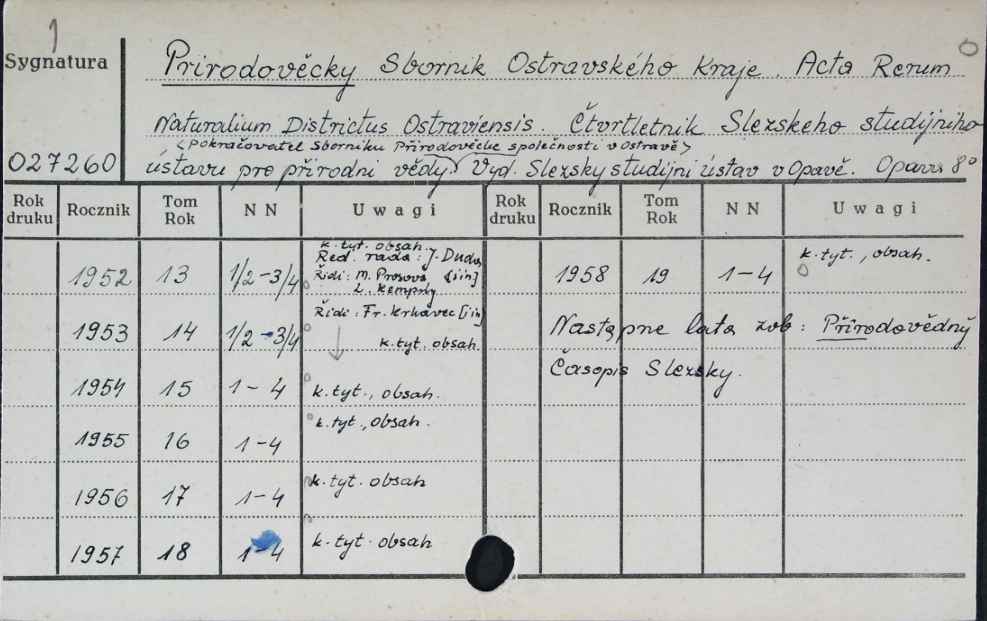 1
Sygnatura
Přirodověcky Sbornik Ostravského Kraje. Acta Rerum
Naturalium Districtus Ostraviensis. Čtvrtletnik Slezskeho studijniho
<Pokračovatel Sborniku Přirodovědcke společnosti v Ostravě>
027260 ústavu pro přirodni vědy. Vyd. Slezsky studijni ústav v Opavě. Opava 8°
Rok druku Rocznik Tom Rok N N Uwagi Rok druku Rocznik Tom Rok N N Uwagi
1952 13 1/2-3/4 k. tyt. obsah.
Red. rada: J. Duda,
Řidi: M. Prosová [jin]
L. Kempný
1958 19 1-4 k. tyt., obsah.
1953 14 1/2-3/4 Řidi: Fr. Krkavec [jin]
k. tyt. obsah.
Następne lata zob: Přirodovědný
Časopis Slezsky.
1954 15 1-4 k. tyt., obsah.
1955 16 1-4 k. tyt., obsah.
1956 17 1-4 k. tyt. obsah
1957 18 1-4 k. tyt. obsah